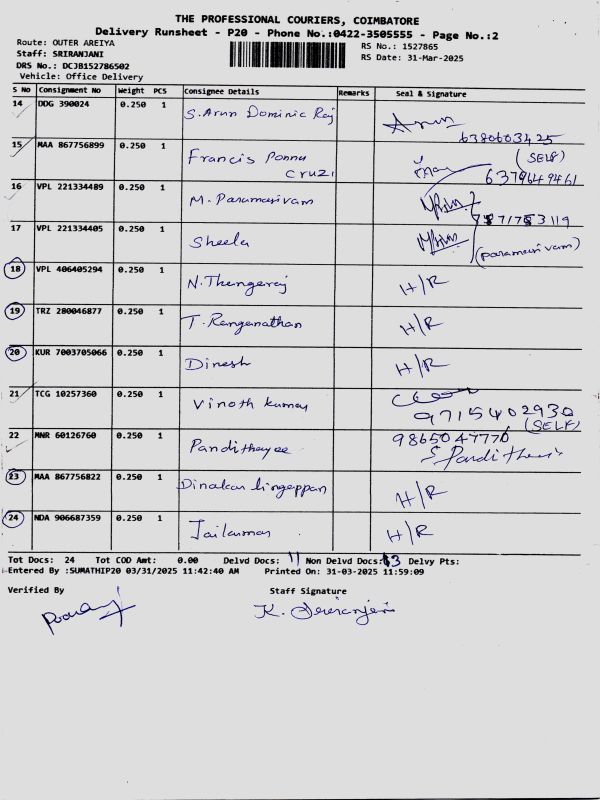 THE PROFESSIONAL COURIERS, COIMBATORE
Delivery Runsheet - P20 - Phone No.:0422-3505555 - Page No.:2
Route: OUTER AREIYA
Staff: SRIRANJANI
DRS No.: DCJB152786502
Vehicle: Office Delivery
RS No.: 1527865
RS Date: 31-Mar-2025
S No Consignment No Weight PCS Consignee Details Remarks Seal & Signature
14 DDG 390024 0.250 1 S. Arun Dominic Raj Arun
6380603425
15 MAA 867756899 0.250 1 Francis Ponnu Cruzi (SELF)
6379649461
16 VPL 221334489 0.250 1 M. Paramasivam
17 VPL 221334405 0.250 1 Sheela (paramasivam)
18 VPL 406405294 0.250 1 N. Thangaraj H/R
19 TRZ 280046877 0.250 1 T. Ranganathan H/R
20 KUR 7003705066 0.250 1 Dinesh H/R
21 TCG 10257360 0.250 1 Vinoth kumar
9715402930
(SELF)
22 MNR 60126760 0.250 1 Pandithayee 9865047770
23 MAA 867756822 0.250 1 Dinakar lingappan H/R
24 NDA 906687359 0.250 1 Jaikumar H/R
Tot Docs: 24 Tot COD Amt: 0.00 Delvd Docs: 11 Non Delvd Docs: 13 Delvy Pts:
Entered By :SUMATHIP20 03/31/2025 11:42:40 AM Printed On: 31-03-2025 11:59:09
Verified By Staff Signature